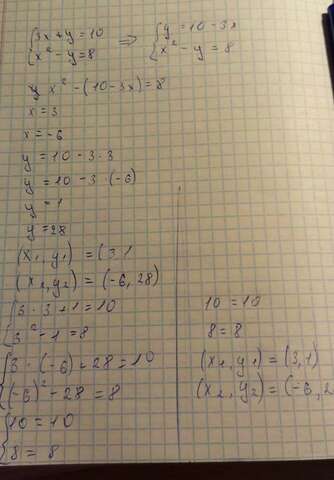 {3x+y=10 ⇒ {y=10-3x
{x²-y=8 {x²-y=8
x²-(10-3x)=8
x=3
x=-6
y=10-3·3
y=10-3·(-6)
y=1
y=28
(x₁,y₁)=(3,1
(x₂,y₂)=(-6,28)
{3·3+1=10
{3²-1=8
{3·(-6)+28=10
{(-6)²-28=8
{10=10
{8=8
10=10
8=8
(x₁,y₁)=(3,1)
(x₂,y₂)=(-6,2